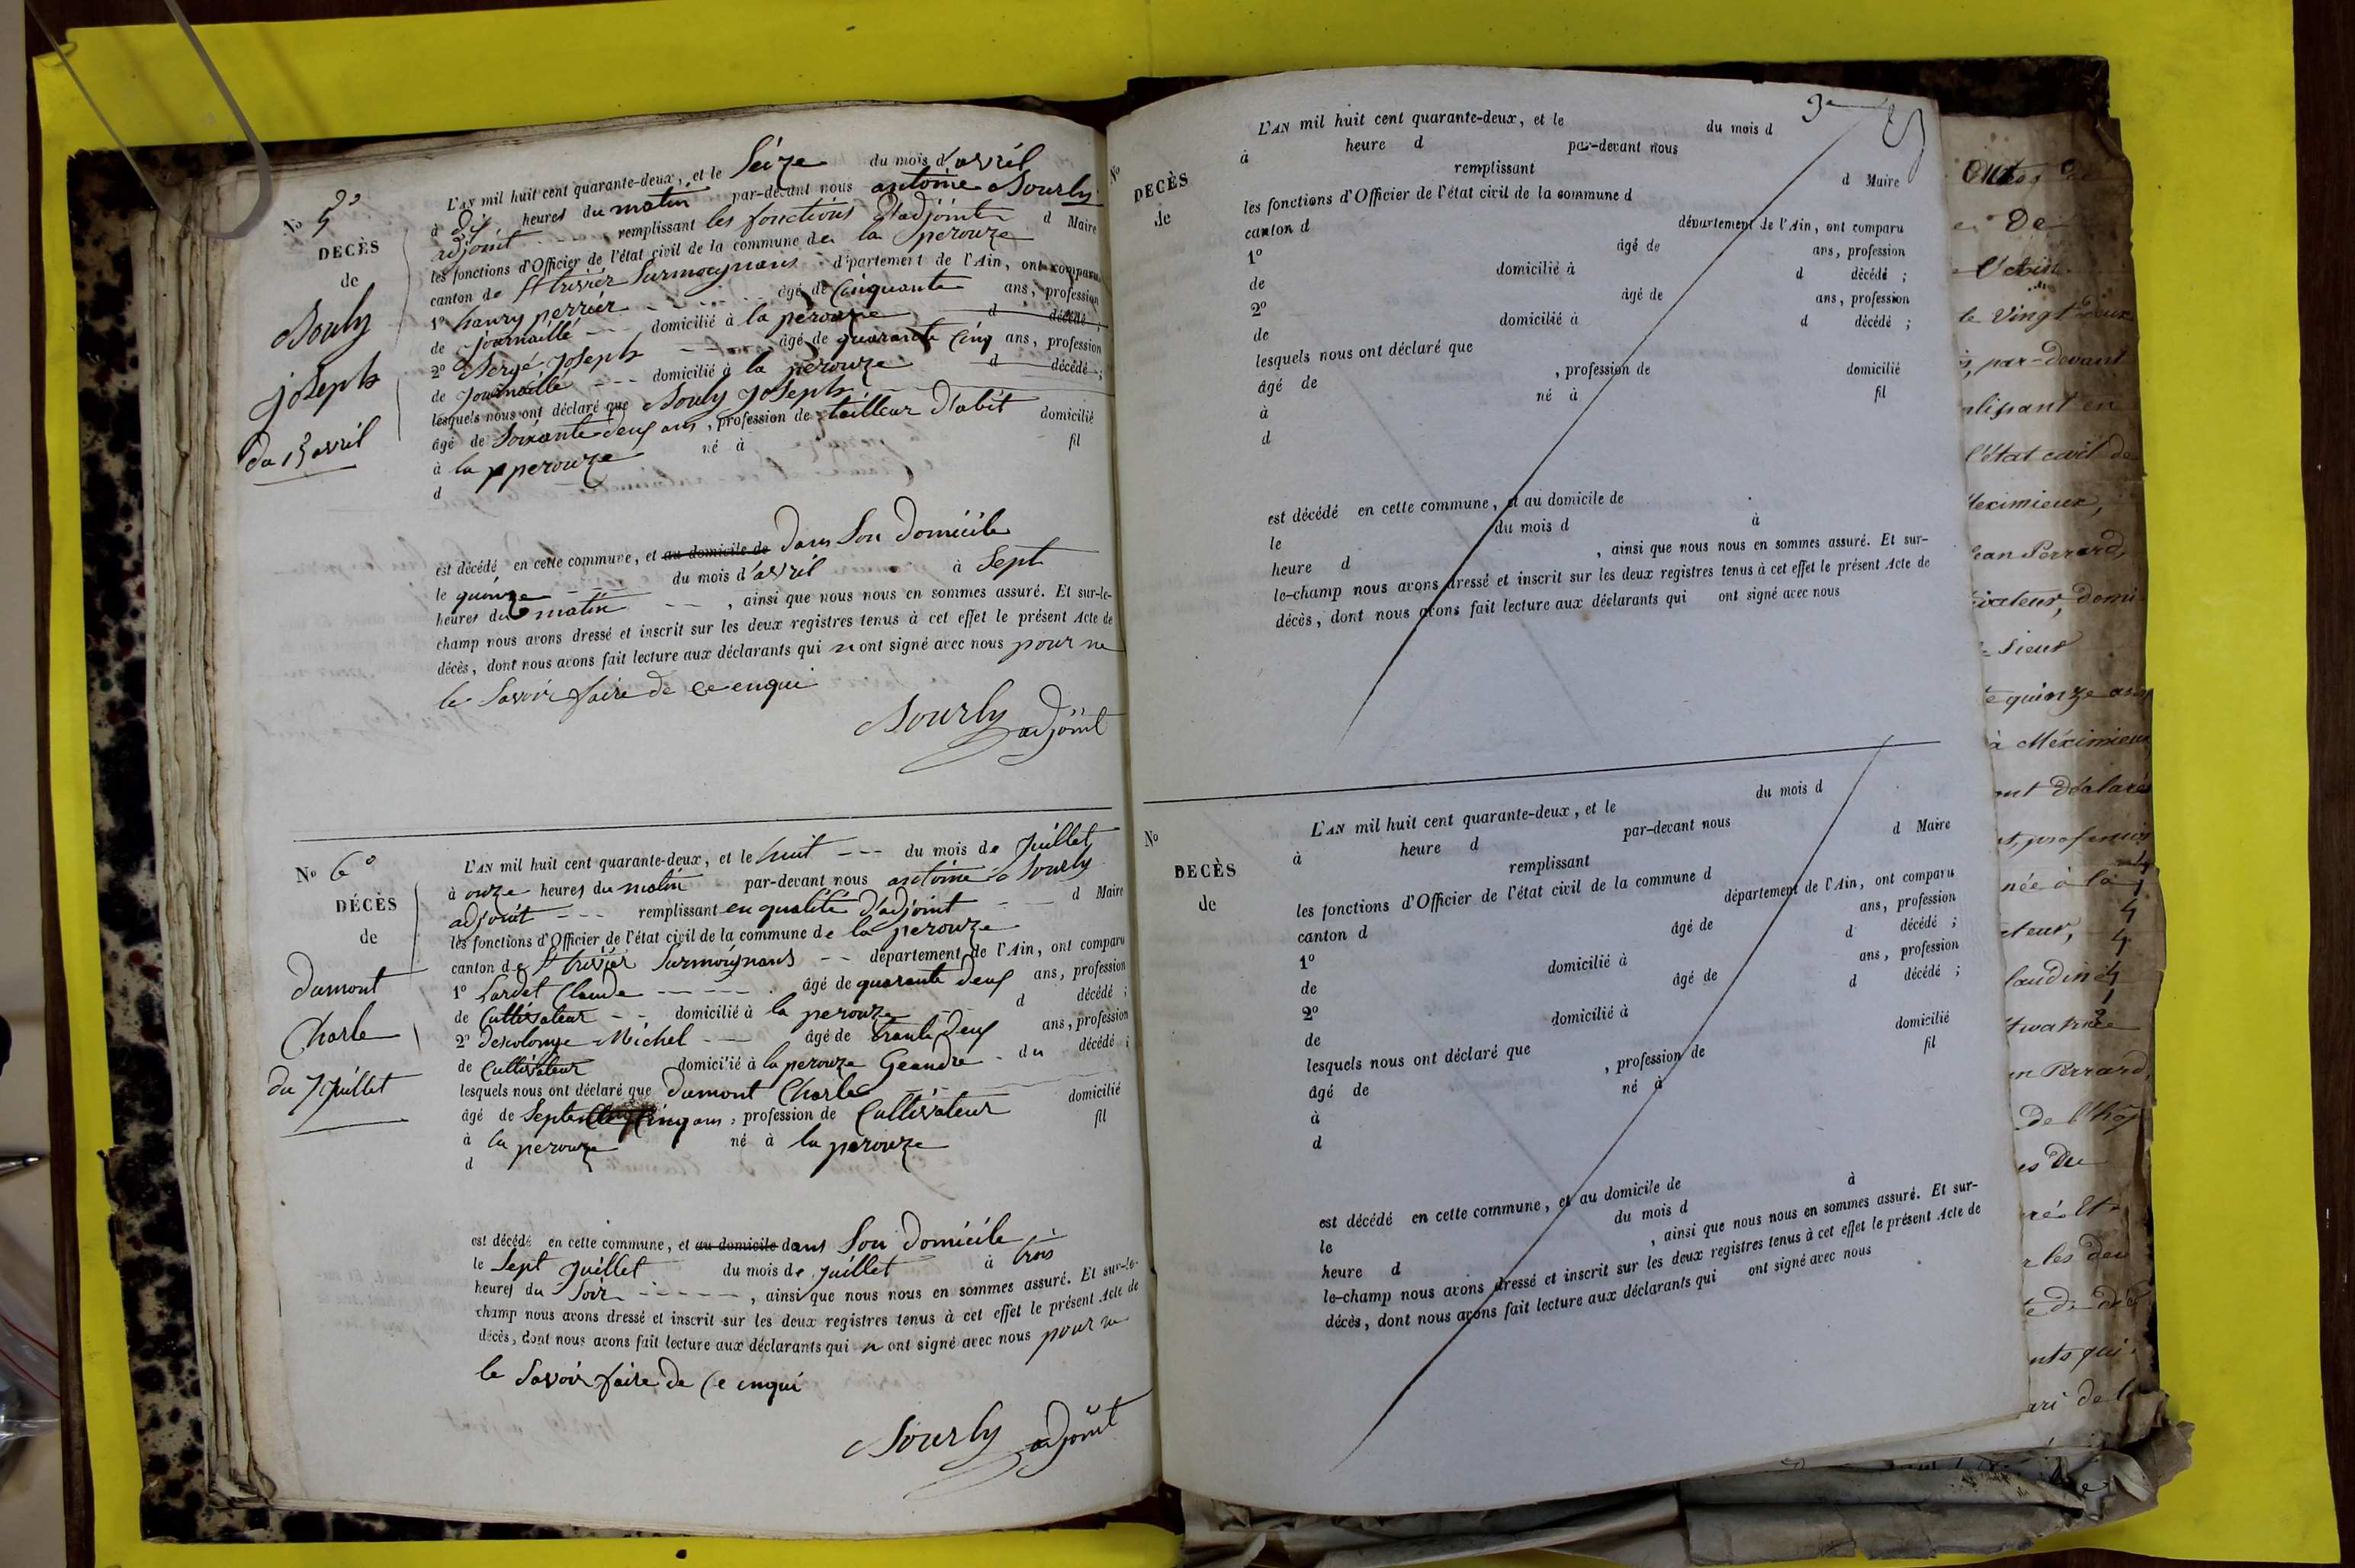 No 5°
DECÈS
de
Bouly
joseph
du 15 avril
L'AN mil huit cent quarante-deux, et le Seize du mois d'avril
à dix heures du matin par-devant nous antoine Sourly
adjoint remplissant les fonctions d'adjoint d Maire
les fonctions d'Officier de l'état civil de la commune de la perouze
canton de St trivier Surmoignans département de l'Ain, ont comparu
1° haury perrier âgé de Cinquante ans, profession
de journaillé domicilié à la perouze d décédé ;
2° Sergé joseph âgé de quarante Cinq ans, profession
de journaillé domicilié à la perouze d décédé ;
lesquels nous ont déclaré que Bouly joseph
âgé de Soixante deux ans, profession de tailleur d'abit domicilié
à la pperouze né à fil
d
est décédé en cette commune, et au domicile de dans Son Domicile
le quinze du mois d'avril à Sept
heures du matin, ainsi que nous nous en sommes assuré. Et sur-le-
champ nous avons dressé et inscrit sur les deux registres tenus à cet effet le présent Acte de
décès, dont nous avons fait lecture aux déclarants qui n ont signé avec nous pour ne
le Savoir faire de ce enqui
Sourly adjoint
No 6°
DÉCÈS
de
dumont
Charle
du 7 juillet
L'AN mil huit cent quarante-deux, et le huit du mois de Juillet
à onze heures du matin par-devant nous antoine Sourly
adjoint remplissant en qualité d'adjoint d Maire
les fonctions d'Officier de l'état civil de la commune de la perouze
canton de St trivier Surmoignans département de l'Ain, ont comparu
1° Lardet Claude âgé de quarante deux ans, profession
de Cultivateur domicilié à la perouze d décédé ;
2° descolonge Michel âgé de trante deux ans, profession
de Cultivateur domicilié à la perouze Geandre du décédé ;
lesquels nous ont déclaré que dumont Charle
âgé de Septente Cinq ans, profession de Cultivateur domicilié
à la perouze né à la perouze fil
d
est décédé en cette commune, et au domicile dans Son Domicile
le Sept juillet du mois de juillet à trois
heures du Soir, ainsi que nous nous en sommes assuré. Et sur-le-
champ nous avons dressé et inscrit sur les deux registres tenus à cet effet le présent Acte de
décès, dont nous avons fait lecture aux déclarants qui n ont signé avec nous pour ne
le Savoir faire de Ce enqui
Sourly adjoint
No
DECÈS
de
L'AN mil huit cent quarante-deux, et le du mois d
à heure d par-devant nous
remplissant d Maire
les fonctions d'Officier de l'état civil de la commune d
canton d département de l'Ain, ont comparu
1° âgé de ans, profession
de domicilié à d décédé ;
2° âgé de ans, profession
de domicilié à d décédé ;
lesquels nous ont déclaré que
âgé de , profession de domicilié
à né à fil
d
est décédé en cette commune, et au domicile de
le du mois d à
heure d , ainsi que nous nous en sommes assuré. Et sur-
le-champ nous avons dressé et inscrit sur les deux registres tenus à cet effet le présent Acte de
décès, dont nous avons fait lecture aux déclarants qui ont signé avec nous
No
DECÈS
de
L'AN mil huit cent quarante-deux, et le du mois d
à heure d par-devant nous
remplissant d Maire
les fonctions d'Officier de l'état civil de la commune d
canton d département de l'Ain, ont comparu
1° âgé de ans, profession
de domicilié à d décédé ;
2° âgé de ans, profession
de domicilié à d décédé ;
lesquels nous ont déclaré que
âgé de , profession de domicilié
à né à fil
d
est décédé en cette commune, et au domicile de
le du mois d à
heure d , ainsi que nous nous en sommes assuré. Et sur-
le-champ nous avons dressé et inscrit sur les deux registres tenus à cet effet le présent Acte de
décès, dont nous avons fait lecture aux déclarants qui ont signé avec nous
De
le Vingt deux
par-devant
l'état civil de
eximieux,
ean Perrard,
domi
Sieur
quinze ans
à Méximieux
déclaré
née à la
n Perrard,
De l'hôp
es Du
r les deu